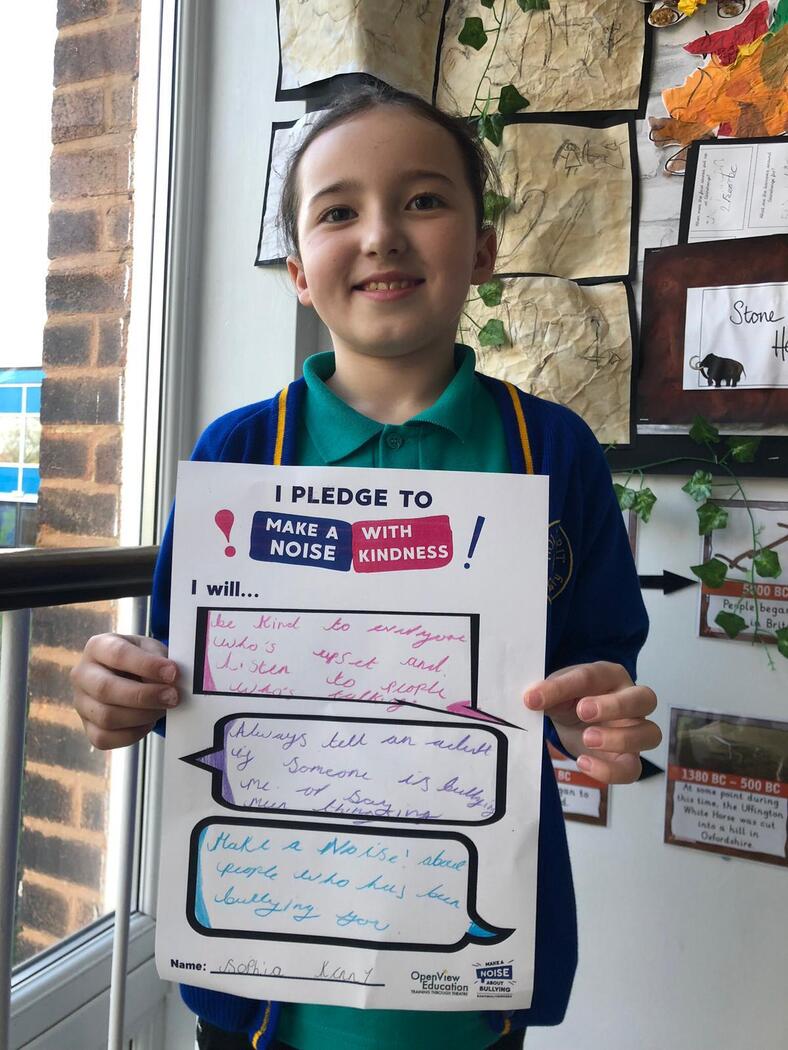 I PLEDGE TO
! MAKE A NOISE WITH KINDNESS !
I will...
be kind to everyone
who's upset and
listen to people
who's talking.
Always tell an adult
if someone is bullying
me or saying
mean things
Make a Noise! about
people who has been
bullying you.
Name: Sophia Kenny
OpenView
Education
TRAINING THROUGH THEATRE
MAKE A
NOISE
ABOUT
BULLYING
Stone
He
5000 BC
People began
in Brit
1380 BC – 500 BC
At some point during
this time, the Uffington
White Horse was cut
into a hill in
Oxfordshire.